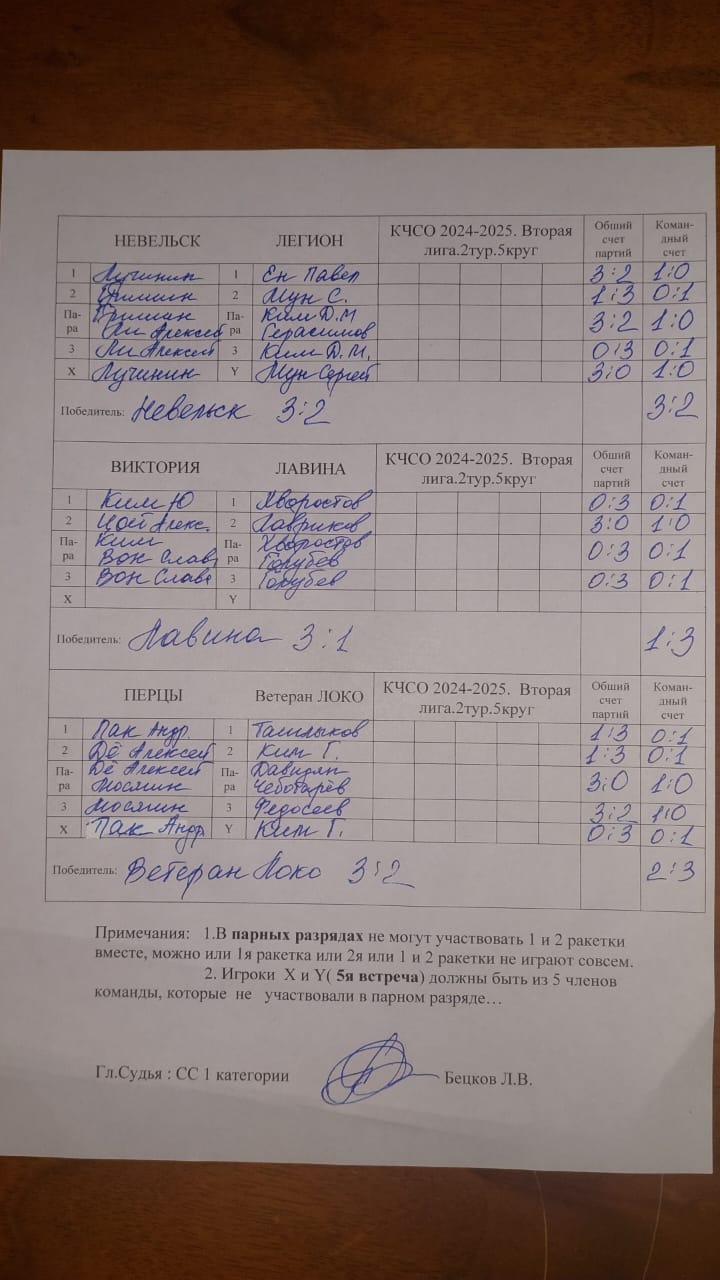 НЕВЕЛЬСК ЛЕГИОН КЧСО 2024-2025. Вторая лига.2тур.5круг Общий счет партий Коман-дный счет
1 Лучинин 1 Ен Павел 3:2 1:0
2 2 Мун С. 1:3 0:1
Па-ра Па-ра Ким Д.М 3:2 1:0
Ли Алексей Герасимов
3 Ли Алексей 3 Ким Д.М. 0:3 0:1
X Лучинин Y Мун Сергей 3:0 1:0
Победитель: Невельск 3:2 3:2
ВИКТОРИЯ ЛАВИНА КЧСО 2024-2025. Вторая лига.2тур.5круг Общий счет партий Коман-дный счет
1 Ким Ю 1 Хворостов 0:3 0:1
2 Цой Алекс. 2 Лавриков 3:0 1:0
Па-ра Ким Па-ра Хворостов 0:3 0:1
Вон Слава Голубев
3 Вон Слава 3 Голубев 0:3 0:1
X Y
Победитель: Лавина 3:1 1:3
ПЕРЦЫ Ветеран ЛОКО КЧСО 2024-2025. Вторая лига.2тур.5круг Общий счет партий Коман-дный счет
1 Пак Андр. 1 1:3 0:1
2 Дё Алексей 2 Ким Г. 1:3 0:1
Па-ра Дё Алексей Па-ра Давидян 3:0 1:0
Мосягин Чеботарёв
3 Мосягин 3 Федосеев 3:2 1:0
X Пак Андр Y Ким Г. 0:3 0:1
Победитель: Ветеран Локо 3:2 2:3
Примечания: 1.В парных разрядах не могут участвовать 1 и 2 ракетки
вместе, можно или 1я ракетка или 2я или 1 и 2 ракетки не играют совсем.
2. Игроки X и Y( 5я встреча) должны быть из 5 членов
команды, которые не участвовали в парном разряде…
Гл.Судья : СС 1 категории Бецков Л.В.